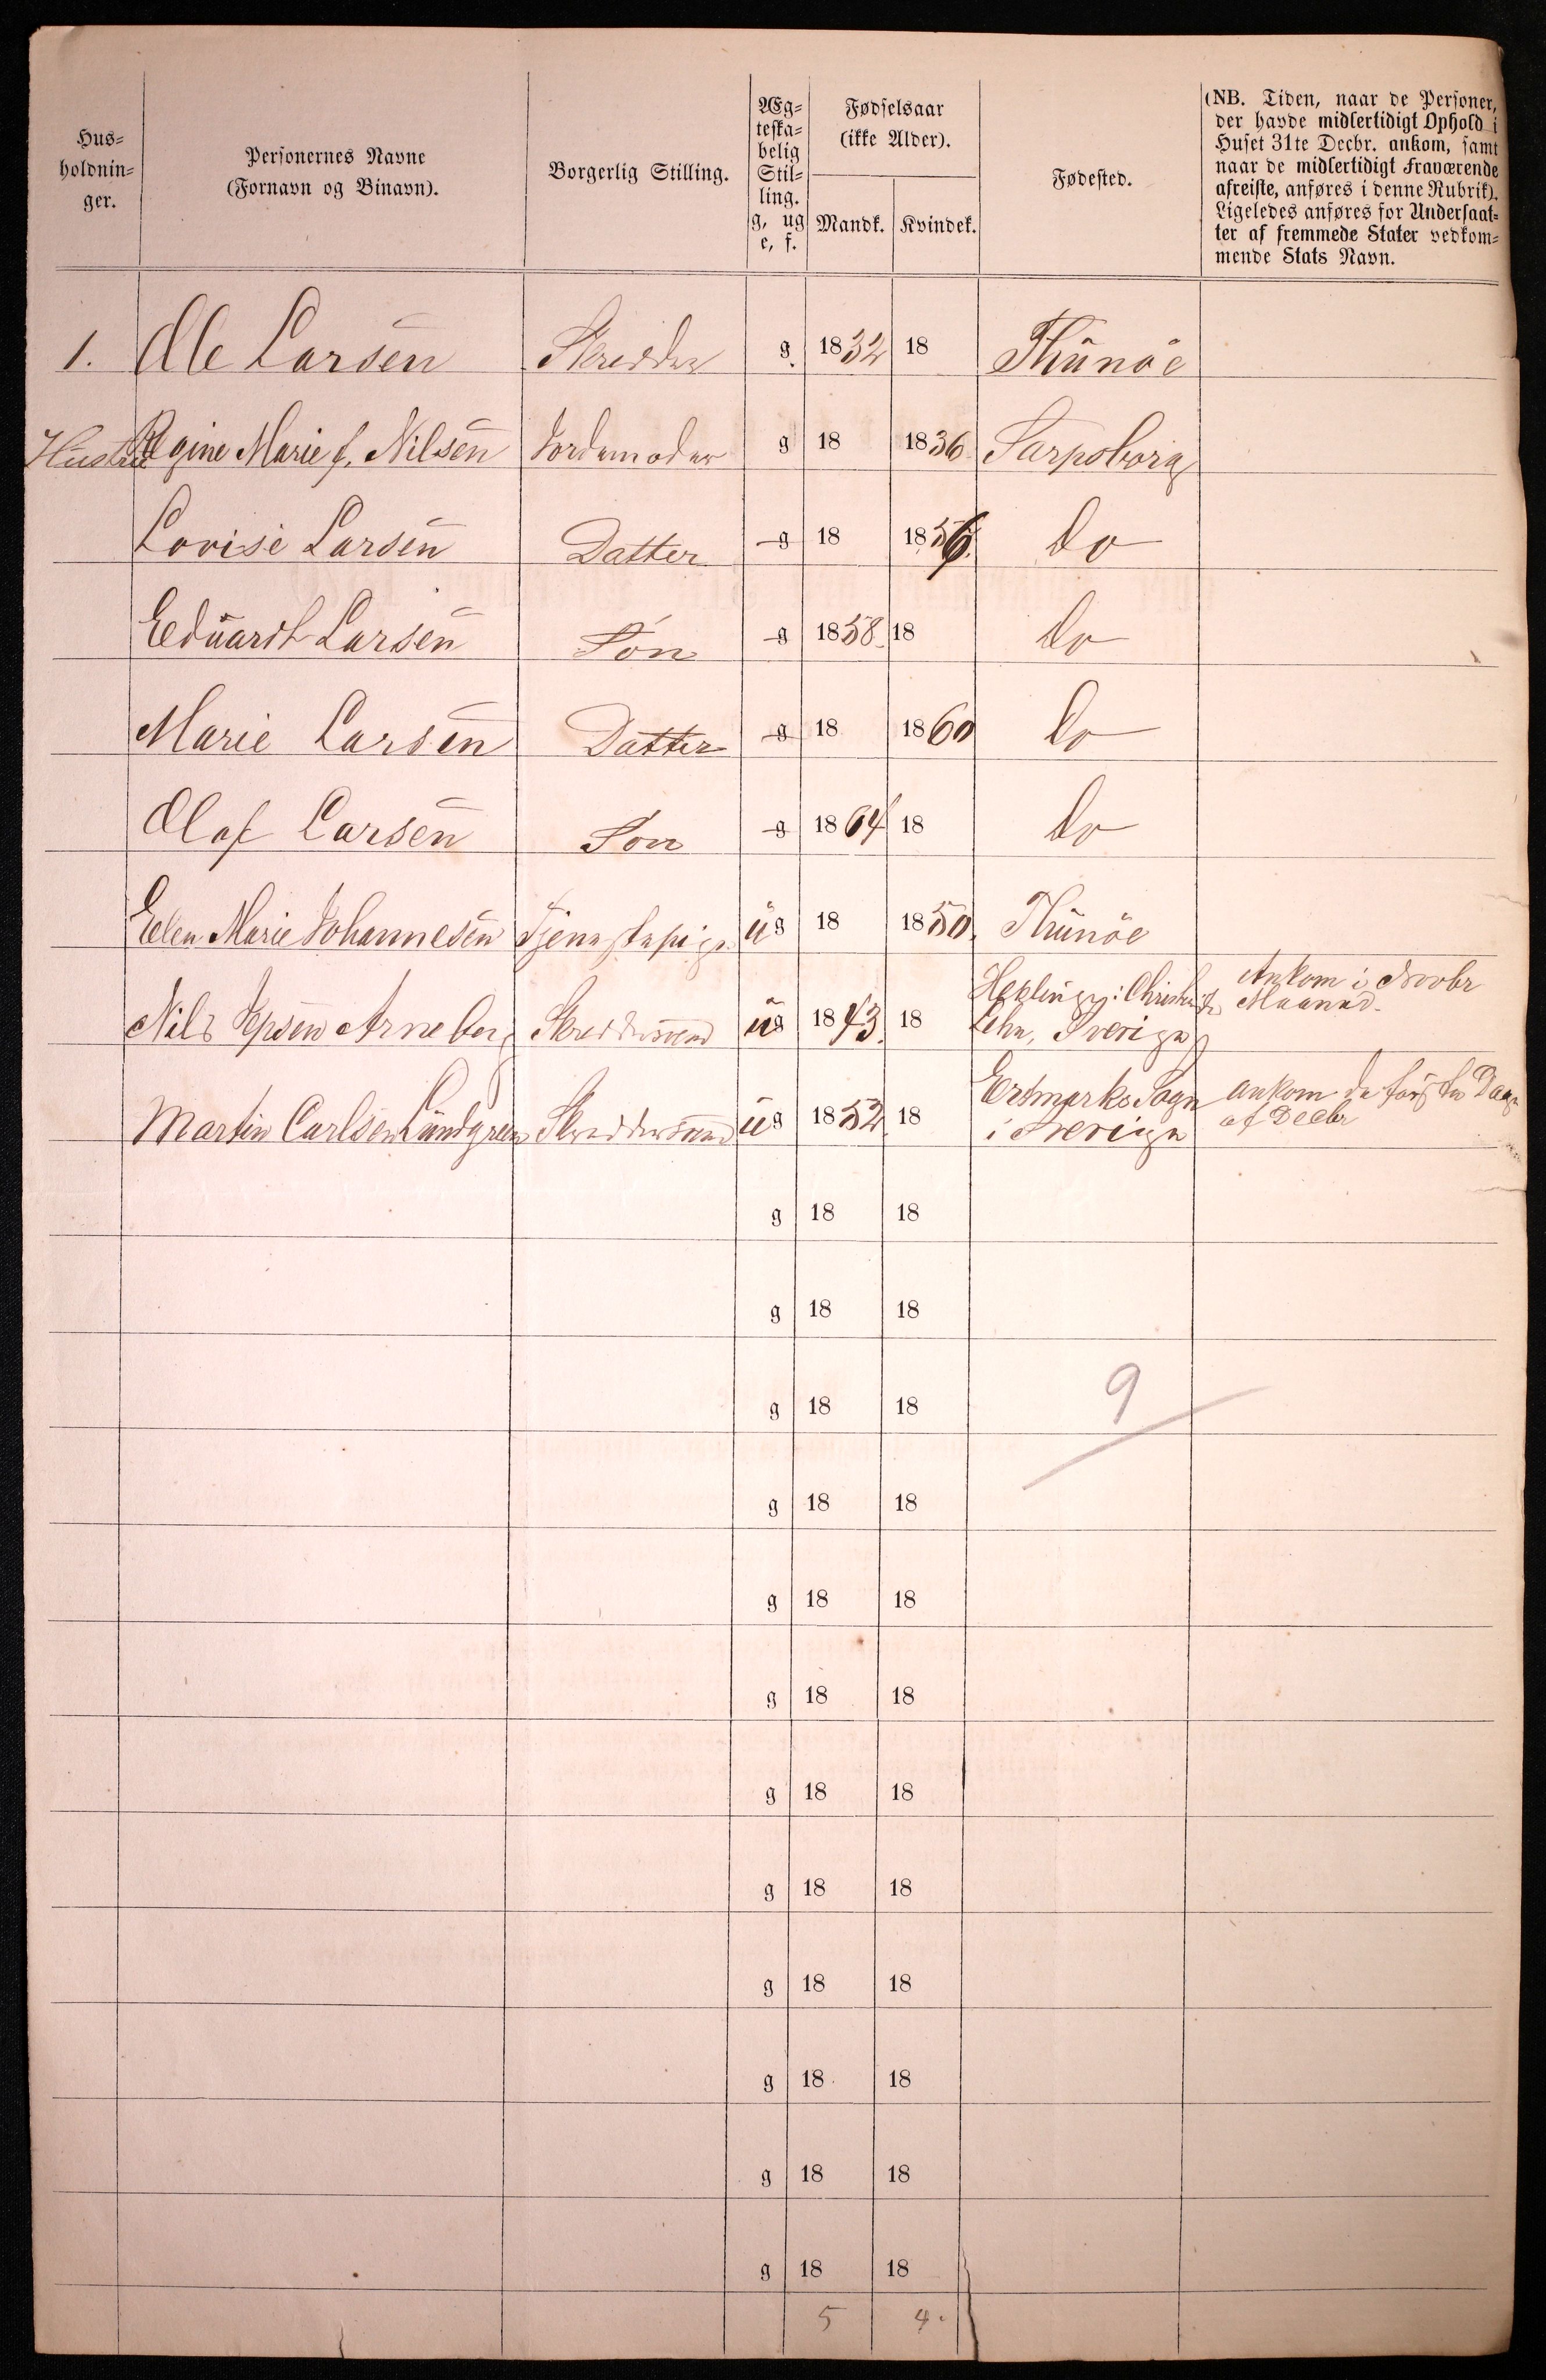 Hus-
holdnin-
ger.
Personernes Navne
(Fornavn og Binavn).
Borgerlig Stilling.
Æg-
teska-
belig
Stil-
ling.
g, ug
e, f.
Fødselsaar
(ikke Alder).
Mandk. Kvindek.
Fødested.
(NB. Tiden, naar de Personer,
der havde midlertidigt Ophold i
Huset 31te Decbr. ankom, samt
naar de midlertidigt Fraværende
afreiste, anføres i denne Rubrik).
Ligeledes anføres for Undersaat-
ter af fremmede Stater vedkom-
mende Stats Navn.
1. Ole Larsen Skredder g. 1832 18 Thunöe
Hustru Regine Marie f. Nilsen Jordemoder g 18 1836 Sarpsborg
Lovise Larsen Datter g 18 1856. Do
Eduardt Larsen Sön g 1858. 18 Do
Marie Larsen Datter g 18 1860 Do
Olaf Larsen Sön g 1864 18 Do
Elen Marie Johannesen Tjenestepige ug 18 1850. Thunöe
Nils Arneberg Skreddersvend ug 1843. 18 Lehn, Sverige
Ankom i Novbr
Maaned.
Martin Carlsen Lundgreen Skreddersvend ug 1852. 18 Sogn
i Sverige
ankom de første Dage
af Decbr
g 18 18
g 18 18
g 18 18
9
g 18 18
g 18 18
g 18 18
g 18 18
g 18 18
g 18 18
g 18 18
g 18 18
g 18 18
5 4.